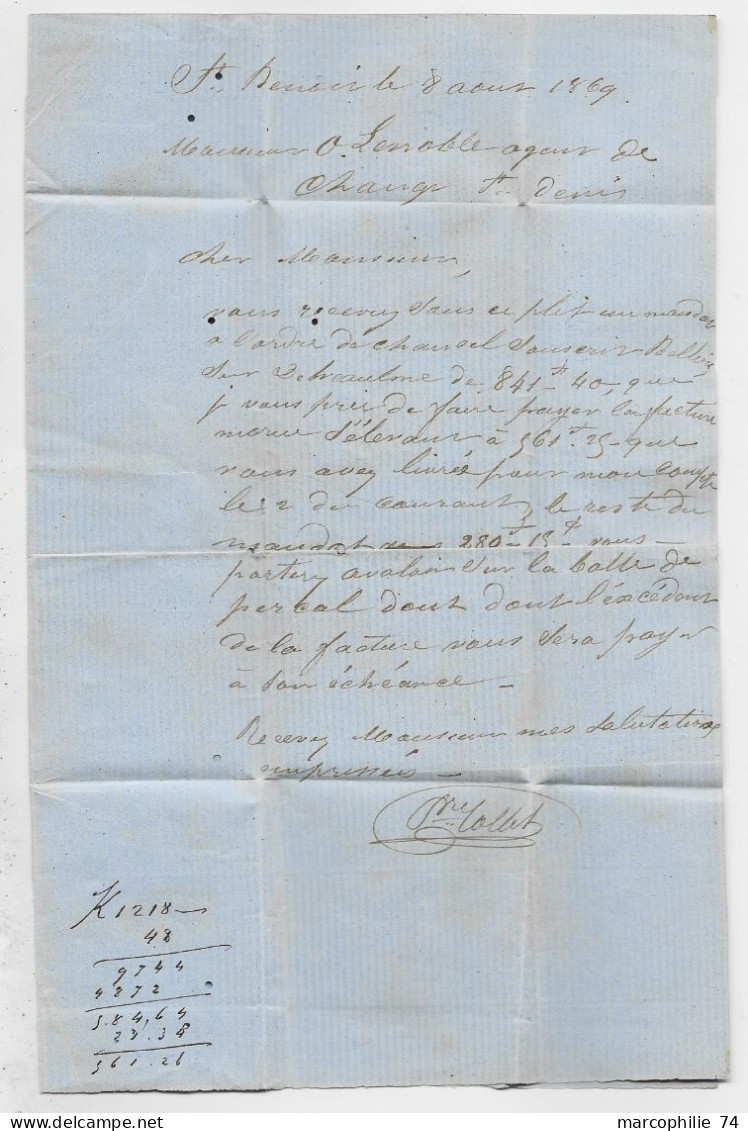 St. Benoit le 8 aout 1869.
Monsieur O. Lenoble agent de
Change St. denis
cher Monsieur,
vous recevez sous ce plit un mandat
à l'ordre de chancel Souscrit
Sur de 841f 40, que
j vous prie de faire payer la facture
morue S'élevant à 561f. 25 que
vous avez livrée pour mon compte
le 2 du courant, le reste du
mandat 280f 15c vous
porterez avaloir Sur la balle de
percal dont dont l'éxcédent
de la facture vous Sera payer
à Son échéance —
Recevez Monsieur mes Salutations
empressées —
Collet
K 1218
48
9744
4872
584,64
23.38
561.26
marcophilie 74